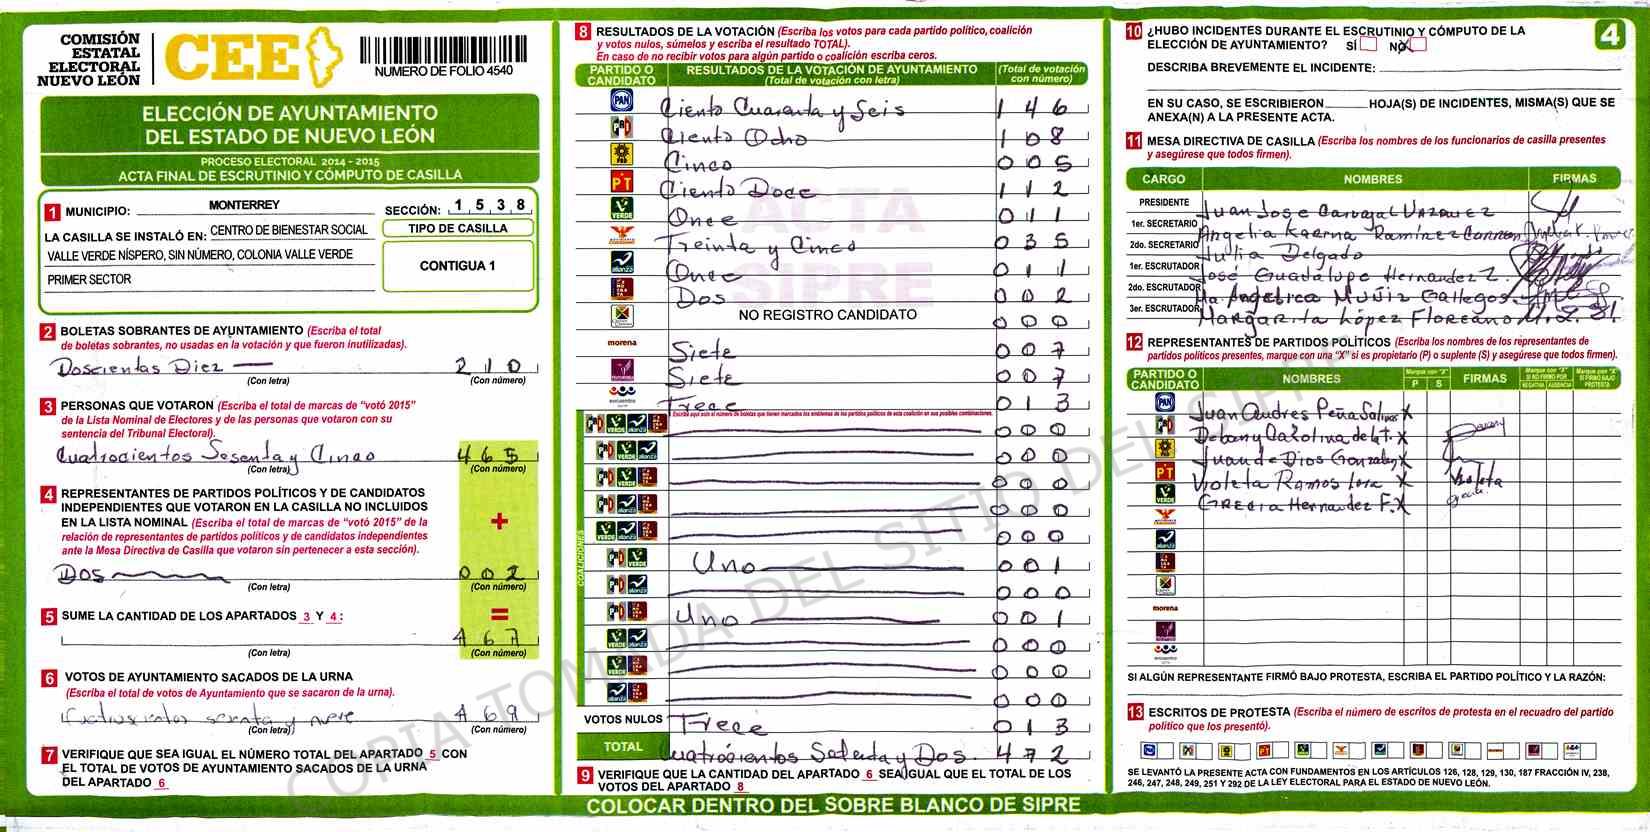 COMISIÓN
ESTATAL
ELECTORAL
NUEVO LEÓN
CEE
NUMERO DE FOLIO 4540
ELECCIÓN DE AYUNTAMIENTO
DEL ESTADO DE NUEVO LEÓN
PROCESO ELECTORAL 2014 - 2015
ACTA FINAL DE ESCRUTINIO Y CÓMPUTO DE CASILLA
1 MUNICIPIO: MONTERREY SECCIÓN: 1 5 3 8
LA CASILLA SE INSTALÓ EN: CENTRO DE BIENESTAR SOCIAL
VALLE VERDE NÍSPERO, SIN NÚMERO, COLONIA VALLE VERDE
PRIMER SECTOR
TIPO DE CASILLA
CONTIGUA 1
2 BOLETAS SOBRANTES DE AYUNTAMIENTO (Escriba el total
de boletas sobrantes, no usadas en la votación y que fueron inutilizadas).
Doscientas Diez 210
(Con letra) (Con número)
3 PERSONAS QUE VOTARON (Escriba el total de marcas de "votó 2015"
de la Lista Nominal de Electores y de las personas que votaron con su
sentencia del Tribunal Electoral).
Cuatrocientos Sesenta y Cinco 465
(Con letra) (Con número)
4 REPRESENTANTES DE PARTIDOS POLÍTICOS Y DE CANDIDATOS
INDEPENDIENTES QUE VOTARON EN LA CASILLA NO INCLUIDOS
EN LA LISTA NOMINAL (Escriba el total de marcas de "votó 2015" de la
relación de representantes de partidos políticos y de candidatos independientes
ante la Mesa Directiva de Casilla que votaron sin pertenecer a esta sección).
+
DOS 002
(Con letra) (Con número)
5 SUME LA CANTIDAD DE LOS APARTADOS 3 Y 4:
=
467
(Con letra) (Con número)
6 VOTOS DE AYUNTAMIENTO SACADOS DE LA URNA
(Escriba el total de votos de Ayuntamiento que se sacaron de la urna).
469
(Con letra) (Con número)
7 VERIFIQUE QUE SEA IGUAL EL NÚMERO TOTAL DEL APARTADO 5 CON
EL TOTAL DE VOTOS DE AYUNTAMIENTO SACADOS DE LA URNA
DEL APARTADO 6
8 RESULTADOS DE LA VOTACIÓN (Escriba los votos para cada partido político, coalición
y votos nulos, súmelos y escriba el resultado TOTAL).
En caso de no recibir votos para algún partido o coalición escriba ceros.
PARTIDO O CANDIDATO RESULTADOS DE LA VOTACIÓN DE AYUNTAMIENTO (Total de votación con letra) (Total de votación con número)
PAN Ciento Cuarenta y Seis 146
PRD Ciento Ocho 108
PRD Cinco 005
PT Ciento Doce 112
VERDE Once 011
Treinta y Cinco 035
alianza Once 011
Dos 002
NO REGISTRO CANDIDATO 000
morena Siete 007
Siete 007
encuentro Trece 013
ACTA
SIPRE
COALICIONES
000
000
000
000
000
VERDE Uno 001
000
Uno 001
000
000
000
VOTOS NULOS Trece 013
TOTAL Cuatrocientos Setenta y Dos. 472
9 VERIFIQUE QUE LA CANTIDAD DEL APARTADO 6 SEA IGUAL QUE EL TOTAL DE LOS
VOTOS DEL APARTADO 8
COLOCAR DENTRO DEL SOBRE BLANCO DE SIPRE
10 ¿HUBO INCIDENTES DURANTE EL ESCRUTINIO Y CÓMPUTO DE LA
ELECCIÓN DE AYUNTAMIENTO? SÍ NO X
4
DESCRIBA BREVEMENTE EL INCIDENTE:
EN SU CASO, SE ESCRIBIERON HOJA(S) DE INCIDENTES, MISMA(S) QUE SE
ANEXA(N) A LA PRESENTE ACTA.
11 MESA DIRECTIVA DE CASILLA (Escriba los nombres de los funcionarios de casilla presentes
y asegúrese que todos firmen).
CARGO NOMBRES FIRMAS
PRESIDENTE Juan Jose Carvajal Vazquez
1er. SECRETARIO Angelia Karina Ramirez
2do. SECRETARIO Julia Delgado
1er. ESCRUTADOR José Guadalupe Hernandez Z.
2do. ESCRUTADOR Ma Angelica Muñiz Gallegos
3er. ESCRUTADOR Margarita López Floreano
12 REPRESENTANTES DE PARTIDOS POLÍTICOS (Escriba los nombres de los representantes de
partidos políticos presentes, marque con una "X" si es propietario (P) o suplente (S) y asegúrese que todos firmen).
PARTIDO O CANDIDATO NOMBRES Marque con "X" P S FIRMAS Marque con "X" SI NO FIRMÓ POR NEGATIVA AUSENCIA Marque con "X" SI FIRMÓ BAJO PROTESTA
PAN Juan Andres Peña Salinas X
Debany Carolina de la T. X
Juan de Dios Gonzalez X
PT Violeta Ramos X Violeta
VERDE Grecia Hernandez F. X
alianza
morena
encuentro
SI ALGÚN REPRESENTANTE FIRMÓ BAJO PROTESTA, ESCRIBA EL PARTIDO POLÍTICO Y LA RAZÓN:
13 ESCRITOS DE PROTESTA (Escriba el número de escritos de protesta en el recuadro del partido
político que los presentó).
SE LEVANTÓ LA PRESENTE ACTA CON FUNDAMENTOS EN LOS ARTÍCULOS 126, 128, 129, 130, 187 FRACCIÓN IV, 238,
246, 247, 248, 249, 251 Y 292 DE LA LEY ELECTORAL PARA EL ESTADO DE NUEVO LEÓN.
COPIA TOMADA DEL SITIO DEL SIPRE